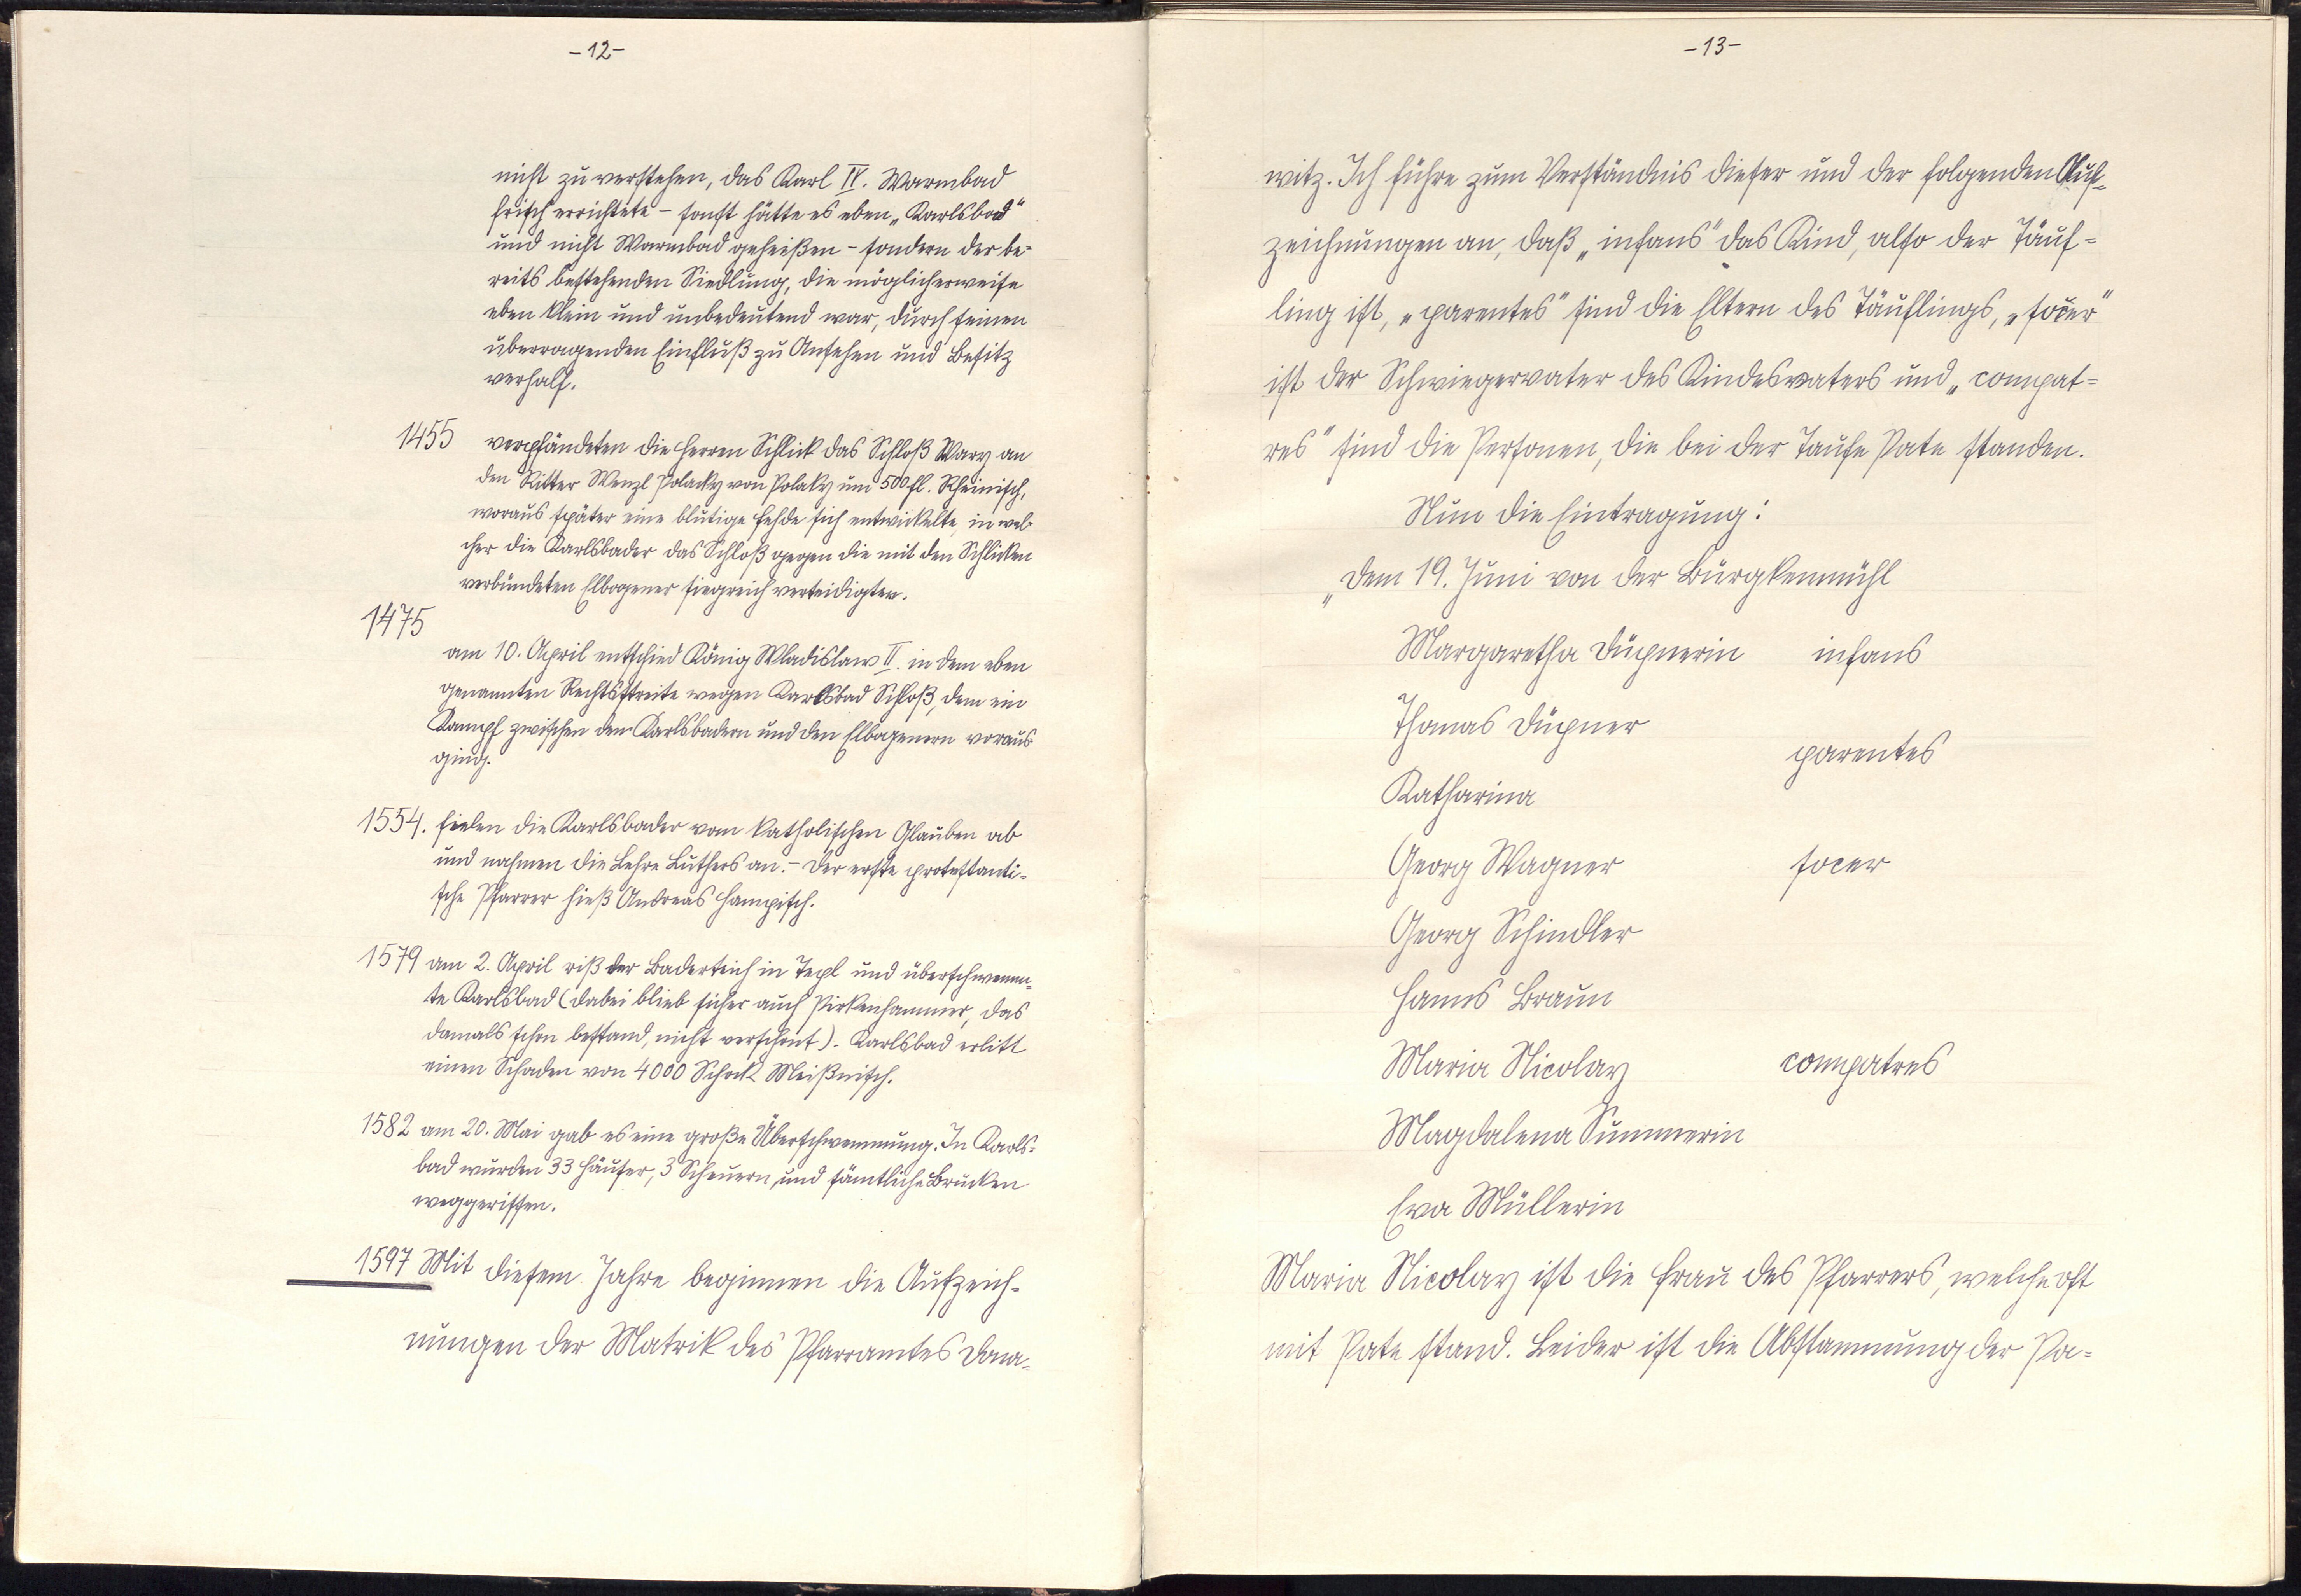 -12-
nicht zu verstehen, das Karl IV. Warmbad
frisch errichtete - sonst hätte es eben „Karlsbad"
und nicht Warmbad geheißen - sondern der be-
reits bestehenden Siedlung, die möglicherweise
eben klein und unbedeutend war, durch seinen
überragenden Einfluß zu Ansehen und Besitz
verhalf.
1455 verpfändeten die Herren Schlick das Schloß Wary an
den Ritter Wenzl Polacky von Polaky um 500 fl. Rheinisch,
woraus später eine blutige Fehde sich entwickelte, in wel-
cher die Karlsbader das Schloß gegen die mit den Schlicken
verbündeten Elbogener siegreich verteidigten.
1475
am 10. April entschied König Wladislaw II. in dem eben
genannten Rechtsstreite wegen Karlsbad Schloß, dem ein
Kampf zwischen den Karlsbadern und den Elbogenern voraus
ging.
1554. fielen die Karlsbader vom katholischen Glauben ab
und nahmen die Lehre Luthers an. - Der erste protestanti-
sche Pfarrer hieß Andreas Hampisch.
1579 am 2. April riß der Baderteich in Tepl und überschwemm-
te Karlsbad (dabei blieb sicher auch Pirkenhammer, das
damals schon bestand, nicht verschont). Karlsbad erlitt
einen Schaden von 4000 Schock Meißnisch.
1582 am 20. Mai gab es eine große Überschwemmung. In Karls-
bad wurden 33 Häuser, 3 Scheuern und sämtliche Brücken
weggerissen.
1597 Mit diesem Jahre beginnen die Aufzeich-
nungen der Matrik des Pfarramtes Dona-
-13-
witz. Ich führe zum Verständnis dieser und der folgenden Auf-
zeichnungen an, daß „infans" das Kind, also der Täuf-
ling ist, „parentes" sind die Eltern des Täuflings, „socer"
ist der Schwiegervater des Kindesvaters und „compat-
res" sind die Personen, die bei der Taufe Pate standen.
Nun die Eintragung:
„Dem 19. Juni von der Bürgkenmühl
Margaretha Düpnerin infans
Thomas Düpner
parentes
Katharina
Georg Wagner socer
Georg Schindler
Hanns Braun
Maria Nicolay compatres
Magdalena Summerin
Eva Müllerin
Maria Nicolay ist die Frau des Pfarrers, welche oft
mit Pate stand. Leider ist die Abstammung der Pa-